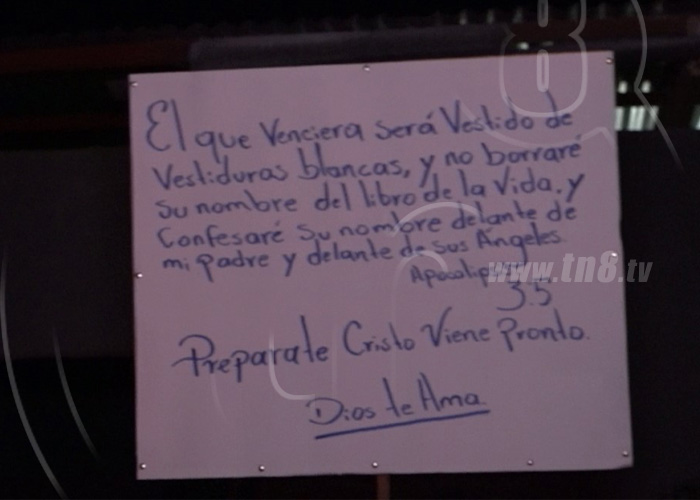 El que Venciera será Vestido de
Vestiduras blancas, y no borraré
su nombre del libro de la Vida. y
Confesaré su nombre delante de
mi padre y delante de sus Ángeles.
Apocalipsis
3.5
Preparate Cristo Viene Pronto.
Dios te Ama
www.tn8.tv
8